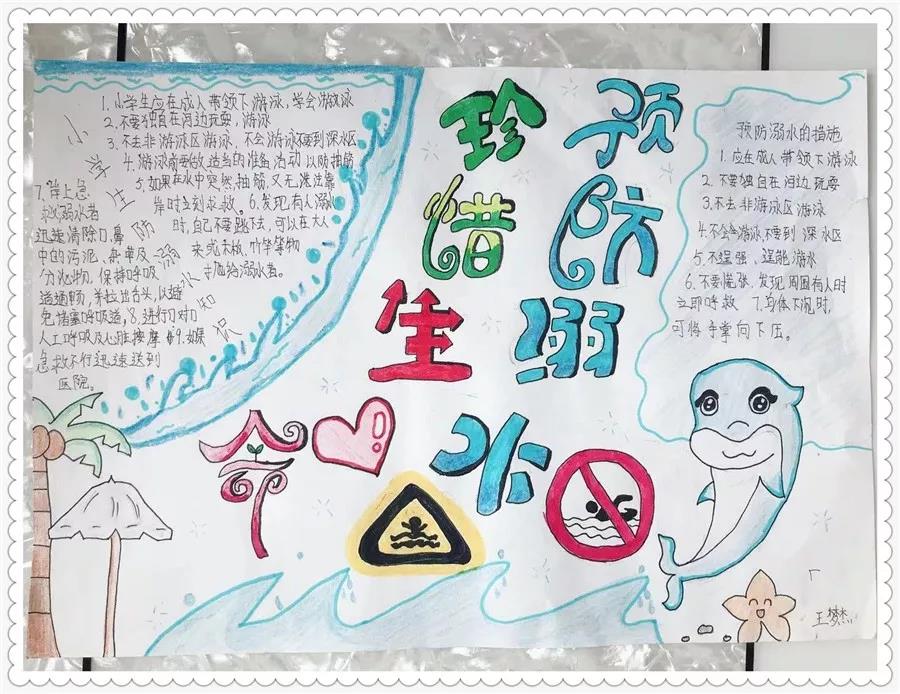 珍惜生命
预防溺水
小学生防溺水小知识
1. 小学生应在成人带领下游泳,学会游泳
2. 不要独自在河边玩耍,游泳
3. 不去非游泳区游泳,不会游泳不要到深水区
4. 游泳前要做适当的准备活动以防抽筋
5. 如果在水中突然抽筋,又无法靠
岸时立刻求救。6. 发现有人溺水
时,自己不要跳下去,可以在大人
来或木板,竹竿等物
去施给溺水者。
7. 岸上急
救溺水者
迅速清除口,鼻
中的污泥,杂草及
分泌物,保持呼吸
道通畅,并拉出舌头,以避
免堵塞呼吸道,8.进行口对口
人工呼吸及心脏按摩 9.如果
急救不行迅速送到
医院。
预防溺水的措施
1. 应在成人带领下游泳
2. 不要独自在河边玩耍
3. 不去非游泳区游泳
4. 不会游泳不要到深水区
5. 不逞强,逞能游水
6. 不要慌张,发现周围有人时
立即呼救 7. 身体下沉时,
可将手掌向下压。